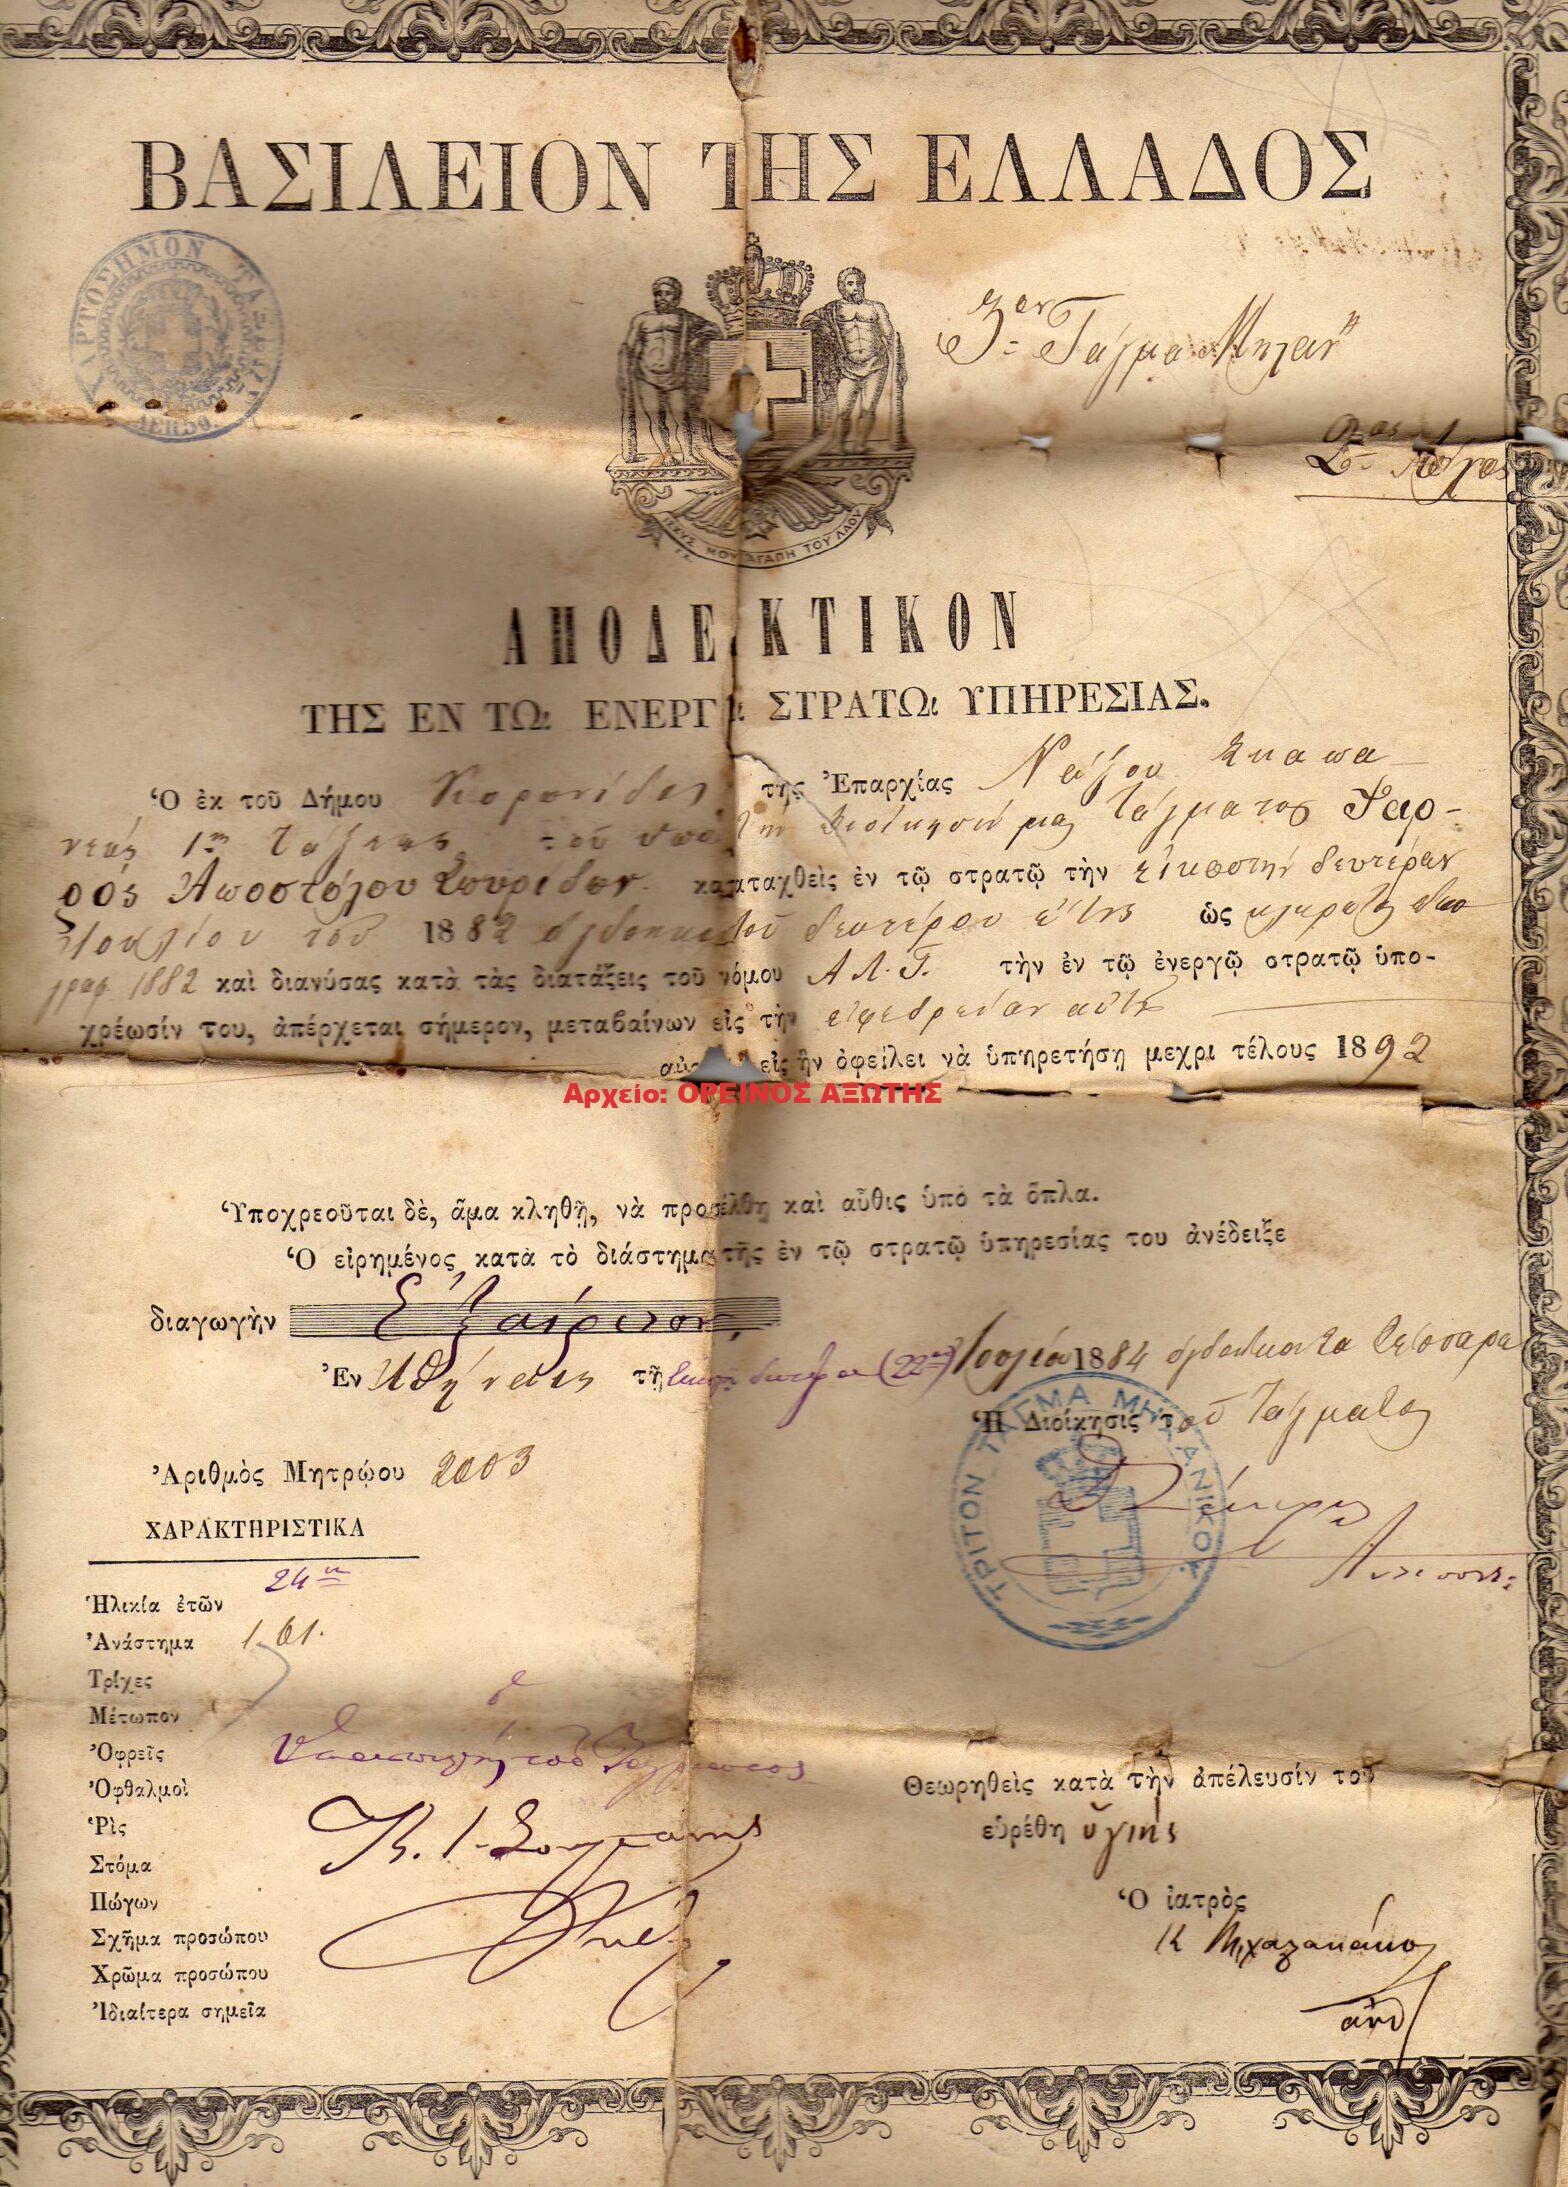 ΒΑΣΙΛΕΙΟΝ ΤΗΣ ΕΛΛΑΔΟΣ
ΧΑΡΤΟΣΗΜΟΝ
ΛΕΠ50.
3ον Τάγμα Μηχανκ
2ος Λόχος
ΙΣΧΥΣ ΜΟΥ Η ΑΓΑΠΗ ΤΟΥ ΛΑΟΥ
ΑΠΟΔΕΙΚΤΙΚΟΝ
ΤΗΣ ΕΝ ΤΩι ΕΝΕΡΓΩι ΣΤΡΑΤΩι ΥΠΗΡΕΣΙΑΣ.
Ὁ ἐκ τοῦ Δήμου Κορωνίδος τῆς Ἐπαρχίας Νάξου Σκαπα-
νεύς 1ης τάξεως τοῦ ὑπὸ τὴν διοίκησίν μας Τάγματος
Ἀποστόλου Σπυρίδων καταταχθεὶς ἐν τῷ στρατῷ τὴν εἰκοστὴν δευτέραν
Ἰουλίου τοῦ 1882 ὀγδοηκοστοῦ δευτέρου ἔτους ὡς
1882 καὶ διανύσας κατὰ τὰς διατάξεις τοῦ νόμου Α Λ. Γ. τὴν ἐν τῷ ἐνεργῷ στρατῷ ὑπο-
χρέωσίν του, ἀπέρχεται σήμερον, μεταβαίνων εἰς τὴν ἐφεδρείαν αὐτοῦ
εἰς ἣν ὀφείλει νὰ ὑπηρετήσῃ μεχρι τέλους 1892
Αρχείο: ΟΡΕΙΝΟΣ ΑΞΩΤΗΣ
Ὑποχρεοῦται δὲ, ἅμα κληθῇ, νὰ προσέλθῃ καὶ αὖθις ὑπὸ τὰ ὅπλα.
Ὁ εἰρημένος κατὰ τὸ διάστημα τῆς ἐν τῷ στρατῷ ὑπηρεσίας του ἀνέδειξε
διαγωγὴν Ἐξαίρετον
Ἐν Ἀθήναις τῇ εἰκοστῇ δευτέρᾳ (22αν) Ἰουλίου 1884 ὀγδοήκοντα τέσσαρα
Ἡ Διοίκησις τοῦ Τάγματος
ΤΡΙΤΟΝ ΤΑΓΜΑ ΜΗΧΑΝΙΚΟΥ
Ἀριθμὸς Μητρῴου 2003
ΧΑΡΑΚΤΗΡΙΣΤΙΚΑ
Ἡλικία ἐτῶν 24
Ἀνάστημα 1.61.
Τρίχες
Μέτωπον
Ὀφρεῖς
Ὀφθαλμοὶ
Ῥὶς
Στόμα
Πώγων
Σχῆμα προσώπου
Χρῶμα προσώπου
Ἰδιαίτερα σημεῖα
τοῦ Τάγματος
Θεωρηθεὶς κατὰ τὴν ἀπέλευσίν του
εὑρέθη ὑγιής
Ὁ ἰατρὸς